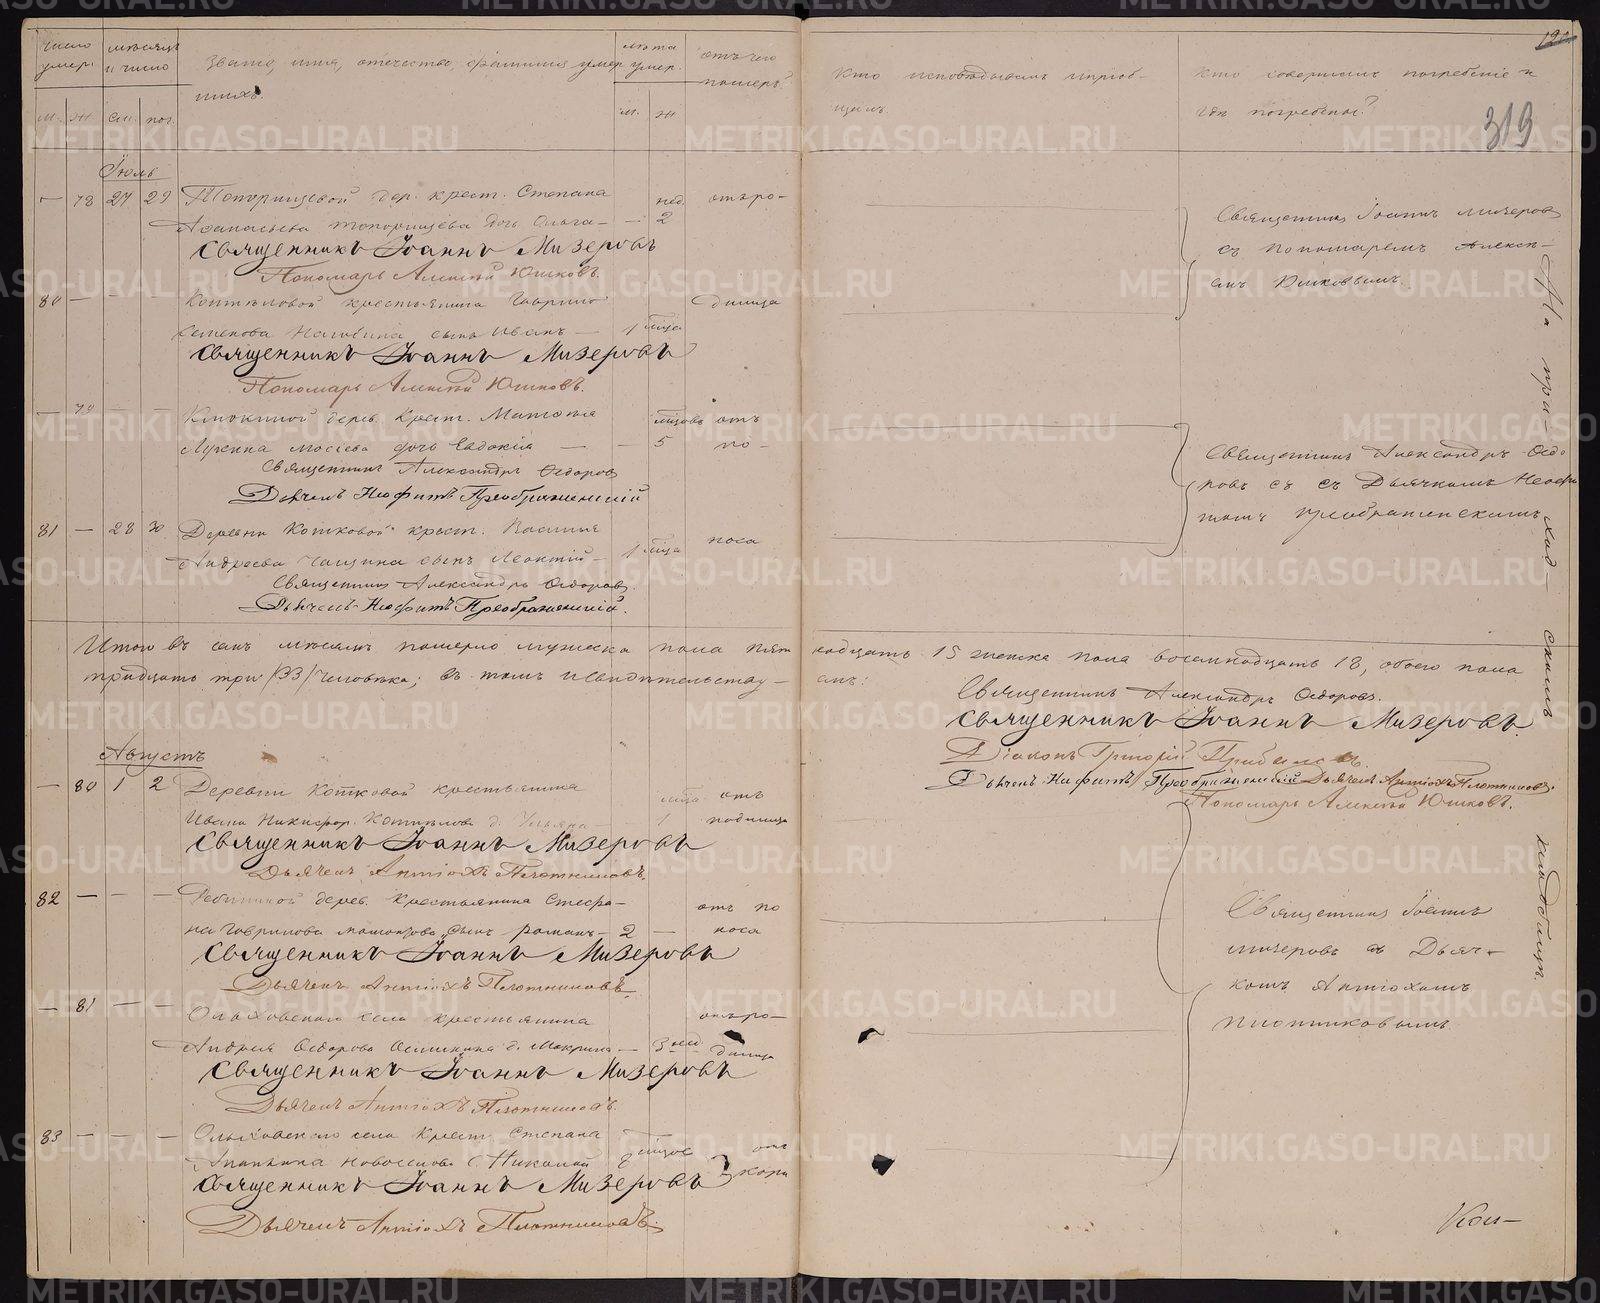 число умер. мѣсяцъ и число Званіе, имя, отечество, фамилія умер- лѣта умер. отъ чего померъ?
шихъ.
м. ж см. пог. м. ж
Кто исповѣдывалъ и приоб-
щалъ.
Кто совершалъ погребеніе и
гдѣ погребенъ?
319
Іюль
— 78 27 29 Топорищевой дер. крест. Степана нед. отъ ро-
Аѳанасьева Топорищева дочь Ольга — — 2
Священникъ Іоаннъ Мизеровъ
Пономарь Алексѣй Юшковъ.
80 — — — крестьянина Гаврила- димца
Семенова сынъ Иванъ — 1 мѣсца
Священникъ Іоаннъ Мизеровъ
Пономарь Алексѣй Юшковъ.
— 79 — — дерев. Крест. мѣсцовъ отъ
Лукина дочь Евдокія — — 5 по-
Священникъ Александръ Ѳедоровъ
Дьячекъ Неофитъ Преображенскій
81 — 28 30 Деревни Котковой крест. Василья 1 мѣсца поса
Андреева сынъ Леонтій —
Священникъ Александръ Ѳедоровъ.
Дьячекъ Неофитъ Преображенскій.
Священникъ Іоаннъ Мизеровъ
съ Пономаремъ Алексѣ-
емъ Юшковымъ.
Священникъ Александръ Ѳедо-
ровъ съ съ Дьячкомъ Неофи-
томъ Преображенскимъ
На при-
ход-
скимъ
кладбищѣ.
Итого въ семъ мѣсяцѣ померло мужеска пола пят- надцать 15 женска пола восемнадцать 18, обоего пола
тридцать три /33/ человѣка; въ томъ и свидѣтельству- емъ:
Священникъ Александръ Ѳедоровъ.
Священникъ Іоаннъ Мизеровъ.
Діаконъ Григорій
Дьячекъ Неофитъ Преображенскій Дьячекъ Антіохъ Плотниковъ.
Пономарь Алексѣй Юшковъ.
Августъ
— 80 1 2 Деревни Котковой крестьянина мѣсца отъ
Ивана Никифор. Коткова д. Ульяна — 1 родимца
Священникъ Іоаннъ Мизеровъ
Дьячекъ Антіохъ Плотниковъ.
82 — — — дерев. Крестьянина Стефа- отъ по
на Гаврилова сынъ Романъ — 2 — носа
Священникъ Іоаннъ Мизеровъ
Дьячекъ Антіохъ Плотниковъ.
— 81 — — Ольховскаго села крестьянина отъ ро-
Андрея Ѳедорова д. Макрина — 3 нед димца
Священникъ Іоаннъ Мизеровъ
Дьячекъ Антіохъ Плотниковъ.
83 — — — Ольховскаго села Крест. Степана мѣсцов отъ
Новоселова с. Николай 8 кори
Священникъ Іоаннъ Мизеровъ
Дьячекъ Антіохъ Плотниковъ.
Священникъ Іоаннъ
Мизеровъ съ Дьяч-
комъ Антіохомъ
Плотниковымъ
METRIKI.GASO-URAL.RU